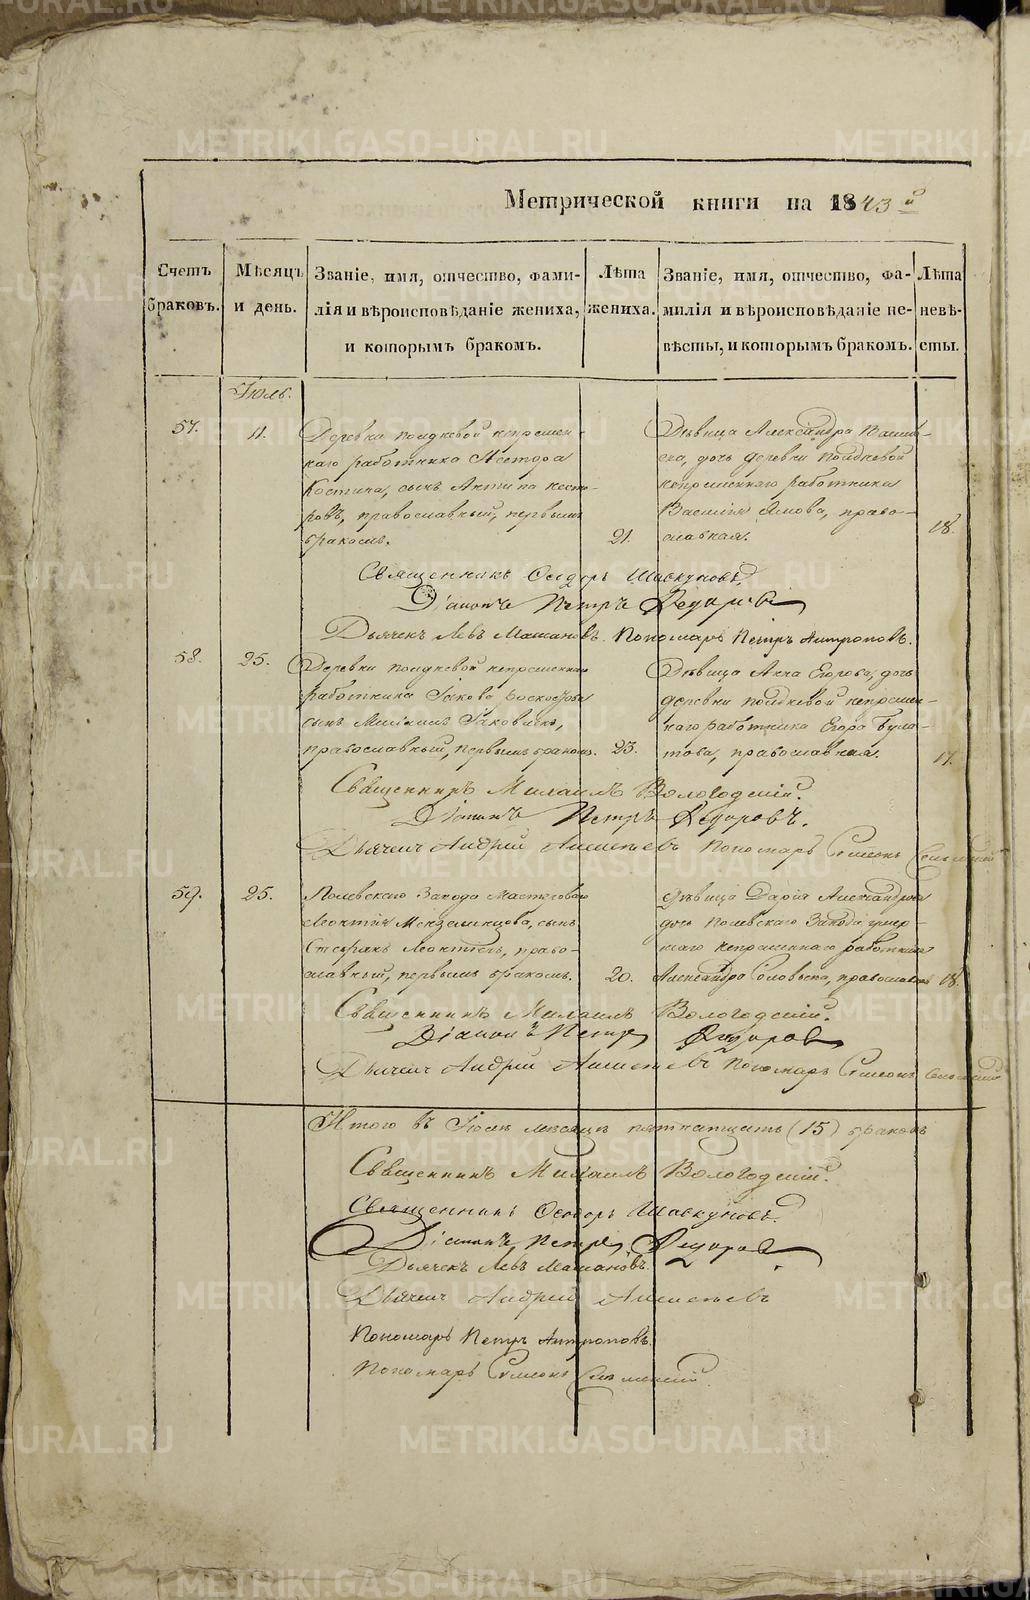 METRIKI.GASO-URAL.RU
Метрической книги на 1843 й
Счетъ браковъ.
Мѣсяцъ и день.
Званіе, имя, отчество, фами-
лія и вѣроисповѣданіе жениха,
и которымъ бракомъ.
Лѣта жениха.
Званіе, имя, отчество, фа-
милія и вѣроисповѣданіе не-
вѣсты, и которымъ бракомъ.
Лѣта невѣ-
сты.
Іюль.
57.
11.
Деревни непремен-
наго работника Нестора
Костина, сынъ Антипа Несте-
ровъ, православный, первымъ
бракомъ.
21.
Дѣвица Александра Василь-
ева, дочь деревни
непременнаго работника
Василія право-
славная.
18.
Священникъ Ѳеодоръ
Діаконъ Петръ Ѳедоровъ
Дьячекъ Левъ Пономарь Петръ Антроповъ.
58.
25.
Деревни непременнаго
работника Іакова
сынъ Іаковлевъ,
православный, первымъ бракомъ.
23.
Дѣвица Анна Егорова, дочь
деревни непремен-
наго работника Егора Була-
това, православная.
17.
Священникъ Михаилъ Вологодскій.
Діаконъ Петръ Ѳедоровъ.
Дьячекъ Андрей Пономарь Симеонъ
59.
25.
Полевскаго Завода Мастероваго
Леонтія Мензелинцова, сынъ
Леонтьевъ, право-
славный, первымъ бракомъ.
20.
Дѣвица Дарія Александрова
дочь Полевскаго Завода умер-
шаго непременнаго работника
Александра Соловьева, православная
18.
Священникъ Михаилъ Вологодскій.
Діаконъ Петръ Ѳедоровъ
Дьячекъ Андрей Пономарь Симеонъ
Итого въ Іюлѣ месяцѣ пятнатцать (15) браковъ
Священникъ Михаилъ Вологодскій.
Священникъ Ѳеодоръ
Діаконъ Петръ Ѳедоровъ
Дьячекъ Левъ
Дьячекъ Андрей
Пономарь Петръ Антроповъ.
Пономарь Симеонъ